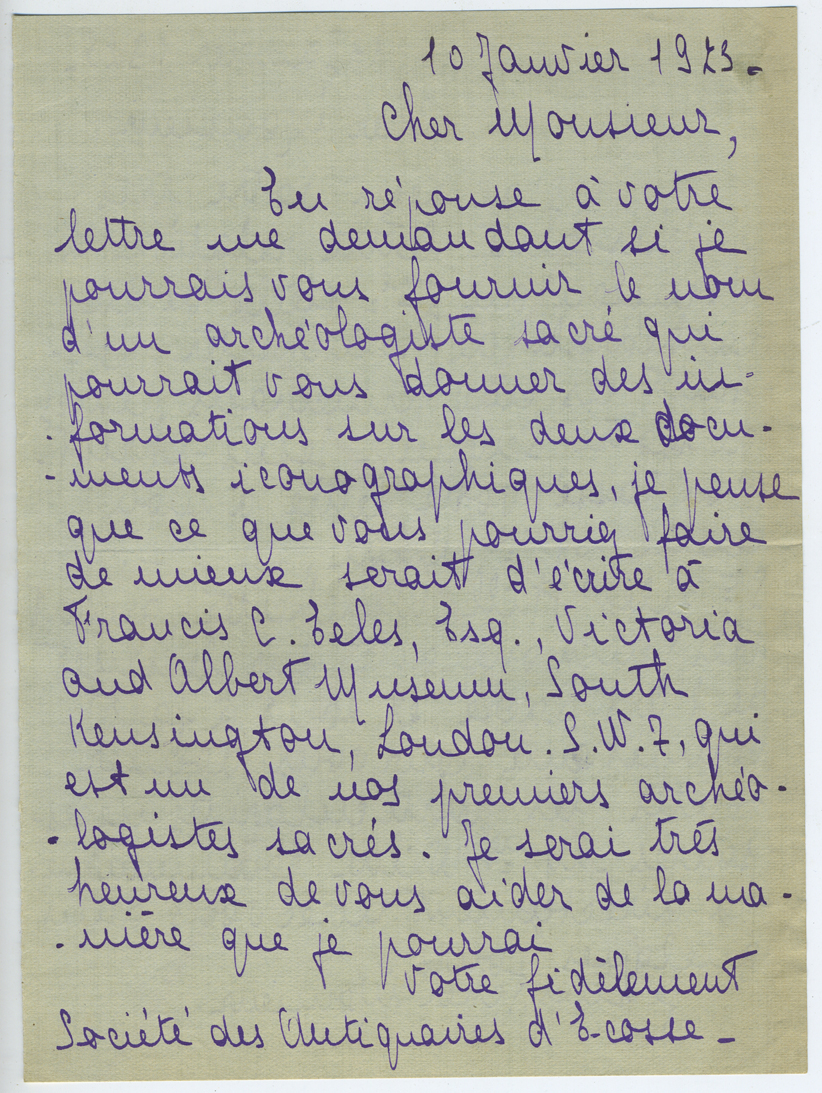 10 Janvier 1923.
Cher Monsieur,
En réponse à votre
lettre me demandant si je
pourrais vous fournir le nom
d'un archéologiste sacré qui
pourrait vous donner des in-
-formations sur les deux docu-
-ments iconographiques, je pense
que ce que vous pourriez faire
de mieux serait d'écrire à
Francis C. Eeles, Esq., Victoria
and Albert Museum, South
Kensington, London. S.W.7, qui
est un de nos premiers archéo-
-logistes sacrés. Je serai très
heureux de vous aider de la ma-
-nière que je pourrai
Votre fidèlement
Société des Antiquaires d'Ecosse_